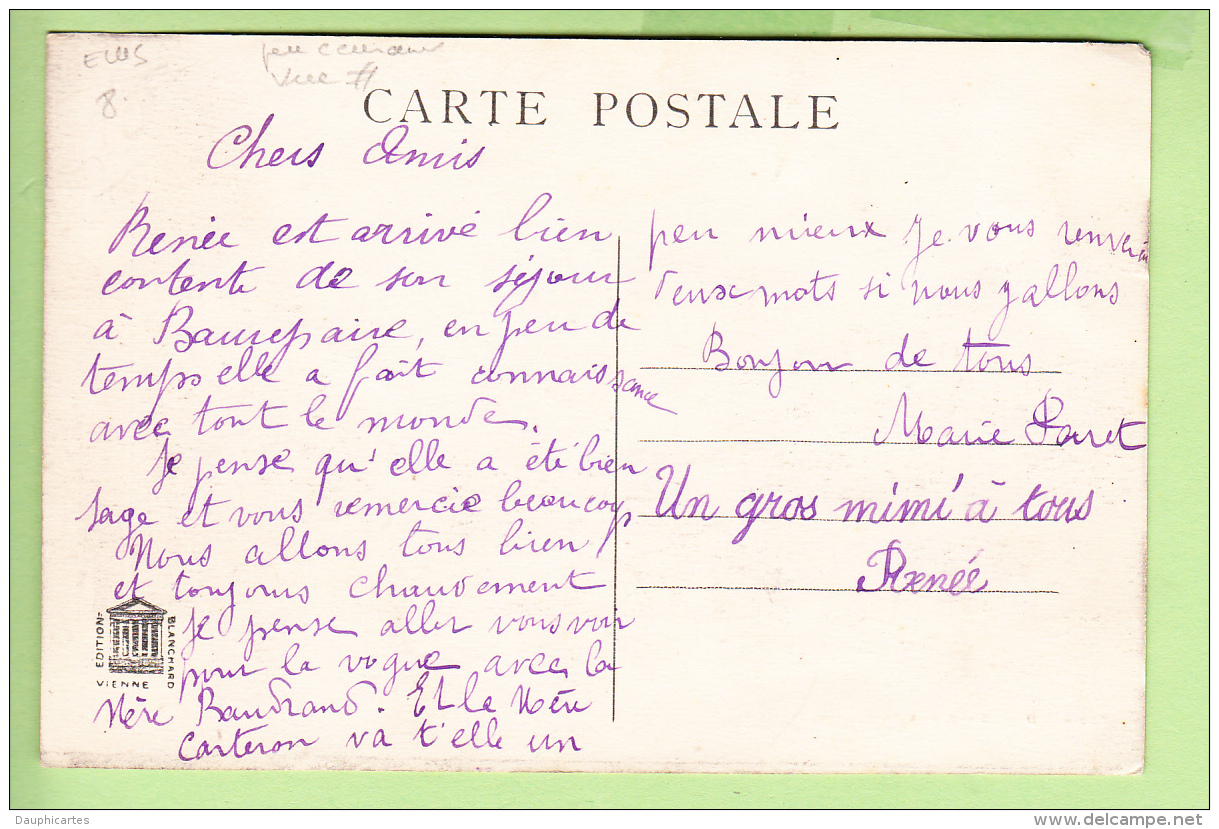 CARTE POSTALE
Chers Amis
Renée est arrivé bien
contente de son séjour
à Beaurepaire, en peu de
temps elle a fait connaissance
avec tout le monde.
Je pense qu'elle a été bien
sage et vous remercie beaucoup
Nous allons tous bien
et toujours chaudement
je pense aller vous voir
pour la vogue avec la
Mère Baudrand. Et la Mère
Carteron va t'elle un
peu mieux je vous
deux mots si nous y allons
Bonjour de tous
Marie Paret
Un gros mimi à tous
Renée
EDITION BLANCHARD
VIENNE
Dauphicartes
www.delcampe.net